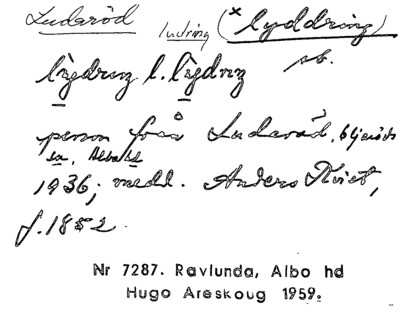 Ludaröd ludring (× lyddring)
lỳdrıŋ l. lỳdrıŋ sb.
person från Ludaröd,
sn, Albo hd
1936; medd. Anders Kvist,
f. 1852.
Nr 7287. Ravlunda, Albo hd
Hugo Areskoug 1959.